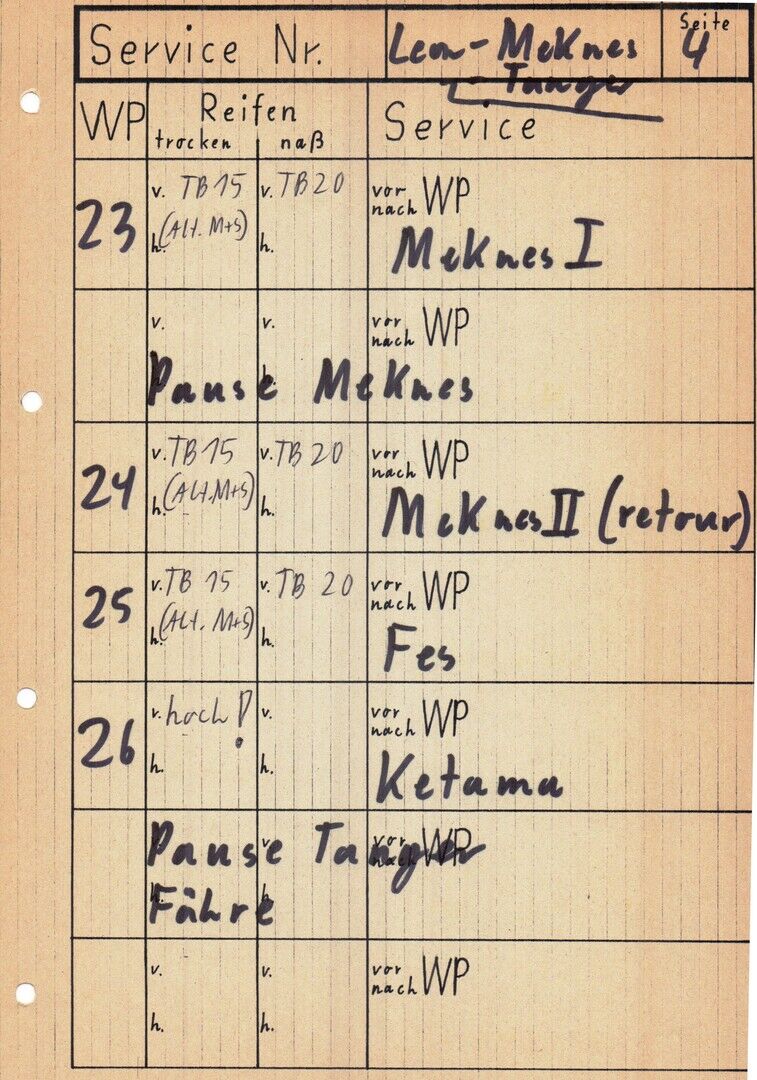 Service Nr. Leon-Meknes Seite 4
- Tanger
WP Reifen Service
trocken naß
23 v. TB 15 v. TB 20 vor nach WP
h. (Alt. M+S) h. Meknes I
v. v. vor nach WP
Pause Meknes
24 v. TB 15 v. TB 20 vor nach WP
h. (Alt. M+S) h. Meknes II (retour)
25 v. TB 15 v. TB 20 vor nach WP
h. (Alt. M+S) h. Fes
26 v. hoch! v. vor nach WP
h. h. Ketama
Pause Tanger v. vor nach WP
Fähre h.
v. v. vor nach WP
h. h.